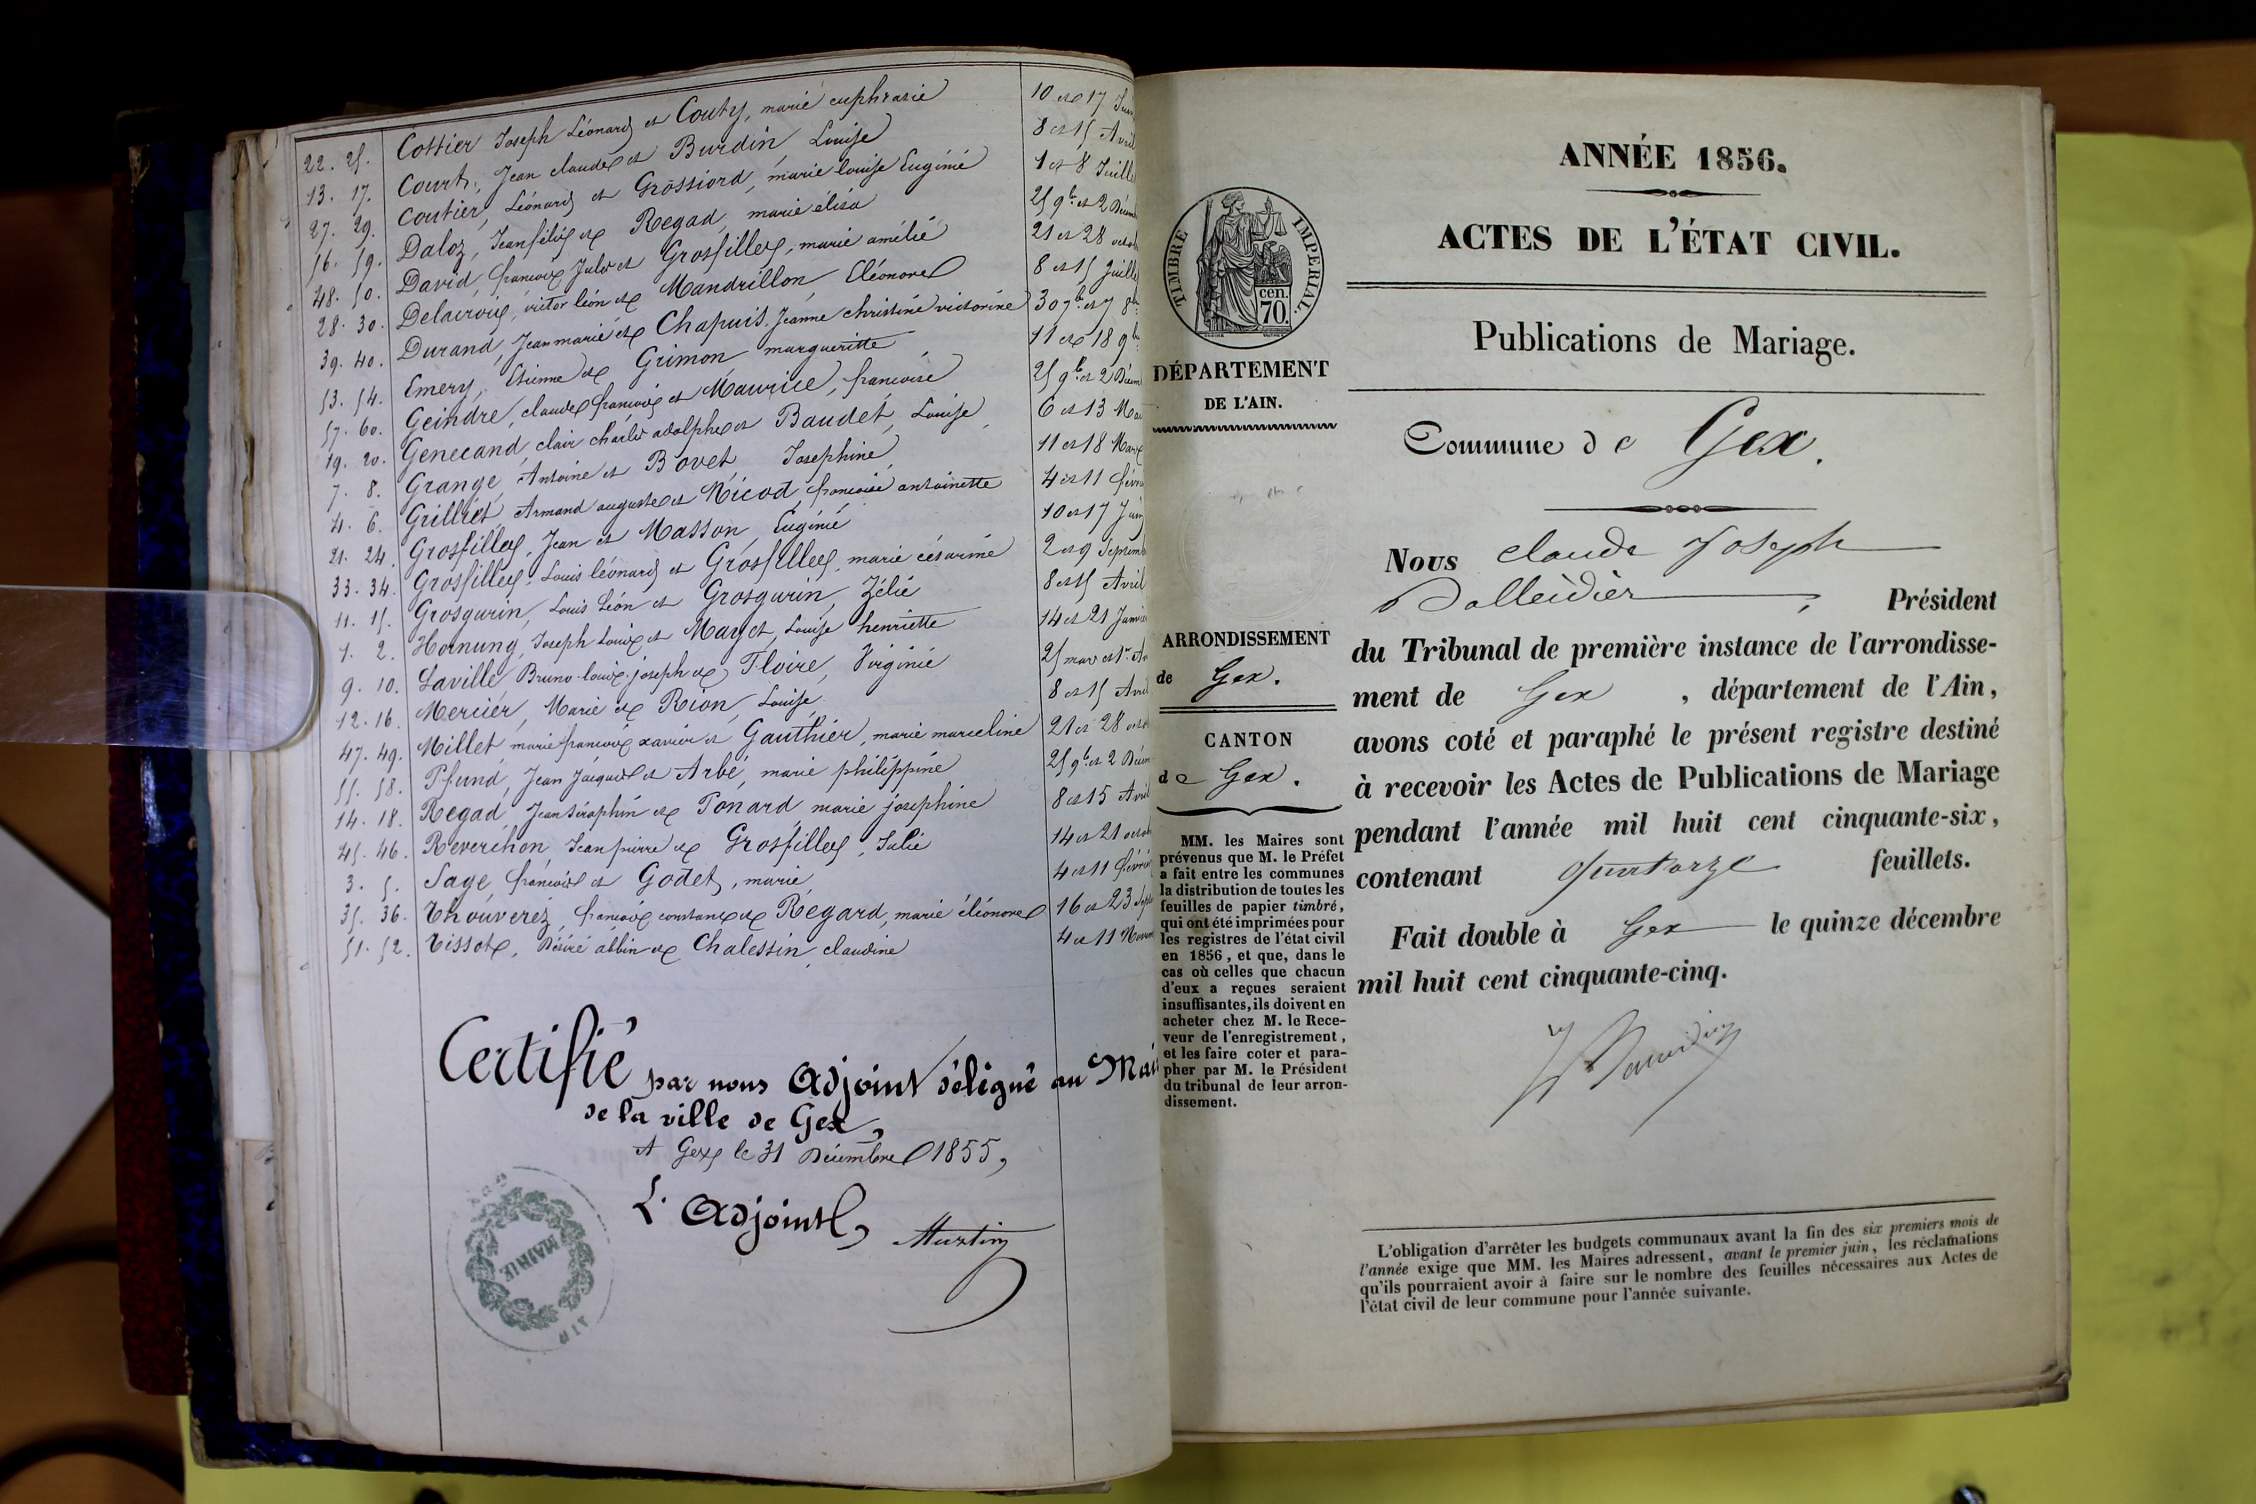 22. 25. Cottier Joseph Léonard et Couty, marie euphrasie 10 et 17 Juin
13. 17. Court, Jean claude et Burdin Louise 8 et 15 Avril
27. 29. Coutier, Léonard et Grossiord, marie louise Eugénie 1 et 8 Juillet
56. 59. Daloz, Jean félix et Regad, marie élisa 25 9bre et 2 Décem
48. 50. David, françois Jules et Grosfilley, marie amélie 21 et 28 octob
28. 30. Delacroix, victor léon et Mandrillon Eléonore 8 et 15 Juillet
39. 40. Durand, Jean marie et Chapuis, Jeanne christine victorine 30 7bre et 7 8bre
53. 54. Emery, Etienne et Grimon margueritte 11 et 18 9bre
57. 60. Geindre, claude françois et Maurice, françoise 25 9bre et 2 Décem
19. 20. Genecand, clair charles adolphe et Baudet, Louise 6 et 13 Mai
7. 8. Grange, Antoine et Bovet Josephine 11 et 18 Mars
4. 6. Grilliet, Armand auguste et Nicod, françoise antoinette 4 et 11 févri
21. 24. Grosfilley, Jean et Masson, Eugénie 10 et 17 Juin
33. 34. Grosfilley, Louis léonard et Grosfilley, marie césarine 2 et 9 Septemb
11. 15. Grosgurin, Louis Léon et Grosgurin, Zélie 8 et 15 Avril
1. 2. Hornung, Joseph Louis et Mayet, Louise henriette 14 et 21 Janvier
9. 10. Laville Bruno louis joseph et Floire, Virginie 25 mars et 1er Av
12. 16. Mercier, Marie et Rion, Louise 8 et 15 Avril
47. 49. Millet marie françois xavier et Gauthier, marie marceline 21 et 28 octob
55. 58. Pfund, Jean Jacques et Arbé, marie philippine 25 9bre et 2 Décem
14. 18. Regad Jean Séraphin et Ponard, marie josephine 8 et 15 Avril
45. 46. Reverchon, Jean pierre et Grosfilley, Julie 14 et 21 octob
3. 5. Sage, françois et Godet, marie 4 et 11 févri
35. 36. Thouverez, françois constance et Regard, marie éléonore 16 et 23 Sept
51. 52. Tissot, Désiré albin et Chalessin, claudine 4 et 11 Novem
Certifié par nous Adjoint délégué au Mai
de la ville de Gex,
A Gex le 31 Décembre 1855,
L'Adjoint, Martin
MAIRIE
AIN
ANNÉE 1856.
ACTES DE L'ÉTAT CIVIL.
Publications de Mariage.
TIMBRE IMPERIAL.
cen.
70.
DÉPARTEMENT
DE L'AIN.
Commune de Gex.
Nous claude Joseph
Balleidier, Président
du Tribunal de première instance de l'arrondisse-
ment de Gex, département de l'Ain,
avons coté et paraphé le présent registre destiné
à recevoir les Actes de Publications de Mariage
pendant l'année mil huit cent cinquante-six,
contenant quatorze feuillets.
Fait double à Gex le quinze décembre
mil huit cent cinquante-cinq.
ARRONDISSEMENT
de Gex.
CANTON
de Gex.
MM. les Maires sont
prévenus que M. le Préfet
a fait entre les communes
la distribution de toutes les
feuilles de papier timbré,
qui ont été imprimées pour
les registres de l'état civil
en 1856, et que, dans le
cas où celles que chacun
d'eux a reçues seraient
insuffisantes, ils doivent en
acheter chez M. le Rece-
veur de l'enregistrement,
et les faire coter et para-
pher par M. le Président
du tribunal de leur arron-
dissement.
L'obligation d'arrêter les budgets communaux avant la fin des six premiers mois de
l'année exige que MM. les Maires adressent, avant le premier juin, les réclamations
qu'ils pourraient avoir à faire sur le nombre des feuilles nécessaires aux Actes de
l'état civil de leur commune pour l'année suivante.